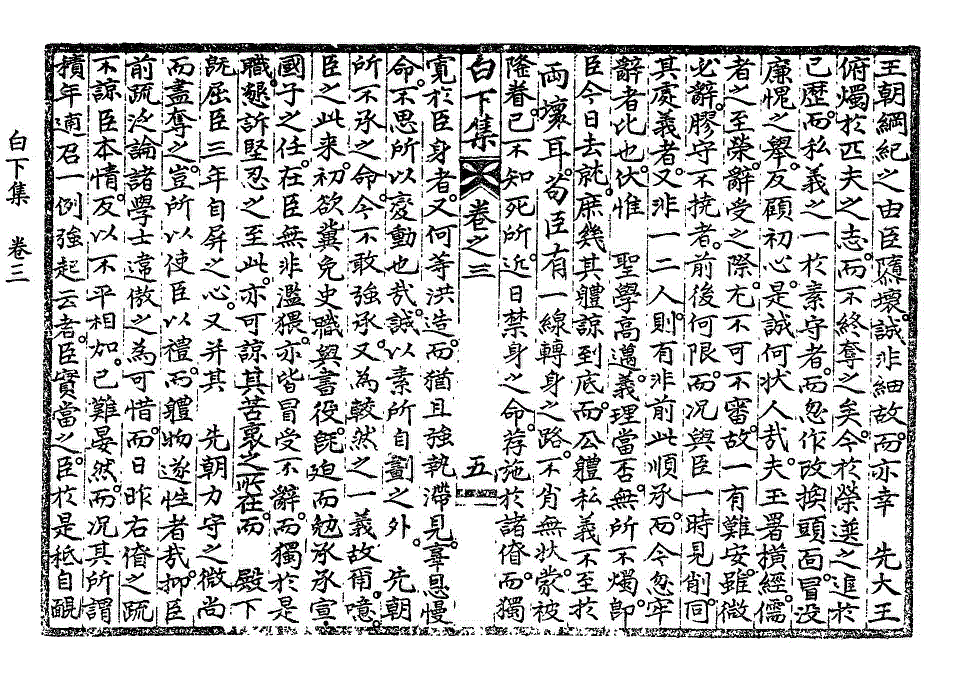 王朝綱紀之由臣隳壞。誠非細故。而亦幸　先大王
俯燭於匹夫之志。而不終奪之矣。今於榮選之進於
已歷。而私義之一於素守者。而忽作改換頭面。冒沒
廉愧之擧。反顧初心。是誠何狀人哉。夫玉署橫經。儒
者之至榮。辭受之際。尤不可不審。故一有難安。雖微
必辭。膠守不撓者。前後何限。而况與臣一時見削。同
其處義者。又非一二人。則有非前此順承。而今忽牢
辭者比也。伏惟　聖學高邁。義理當否。無所不燭。卽
臣今日去就。庶幾其軆諒到底。而公軆私義。不至於
兩壞耳。苟臣有一線轉身之路。不肖無狀。蒙被
隆眷。已不知死所。近日禁身之命。荐施於諸僚。而獨
白下集　卷之三　五
寬於臣身者。又何等洪造。而猶且強執滯見。辜恩慢
命。不思所以變動也哉。誠以素所自劃之外。先朝
所不承之命。今不敢強承。又爲較然之一義故爾。噫。
臣之此来。初欲冀免史職與書役。旣廹而勉承承宣。
國子之任。在臣無非濫猥。亦皆冒受不辭。而獨於是
職。懇訴堅忍之至此。亦可諒其苦衷之所在。而　殿下
旣屈臣三年自屛之心。又并其　先朝力守之微尙
而盡奪之。豈所以使臣以禮。而軆物遂性者哉。抑臣
前疏。泛論諸學士違傲之爲可惜。而日昨右僚之疏。
不諒臣本情。反以不平相加。已難晏然。而况其所謂
積年逋召一例強起云者。臣實當之。臣於是秪自靦
白下集　卷三